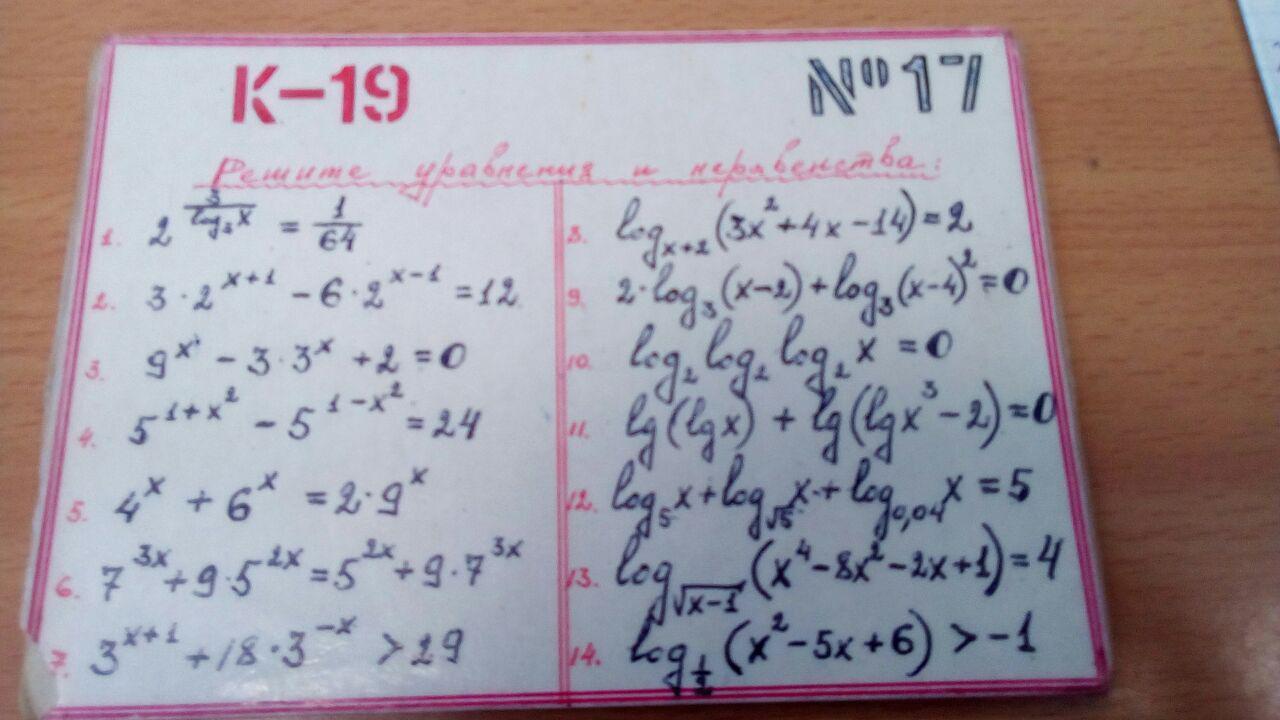 К-19 №17
Решите уравнения и неравенства:
1. 2^(3/log₂x) = 1/64
2. 3·2^(x+1) - 6·2^(x-1) = 12
3. 9^x - 3·3^x + 2 = 0
4. 5^(1+x²) - 5^(1-x²) = 24
5. 4^x + 6^x = 2·9^x
6. 7^(3x) + 9·5^(2x) = 5^(2x) + 9·7^(3x)
7. 3^(x+1) + 18·3^(-x) > 29
8. log_(x+2) (3x² + 4x - 14) = 2
9. 2·log₃(x-2) + log₃(x-4)² = 0
10. log₂ log₂ log₂ x = 0
11. lg(lg x) + lg(lg x³ - 2) = 0
12. log₅ x + log_√5 x + log_0,04 x = 5
13. log_√(x-1) (x⁴ - 8x² - 2x + 1) = 4
14. log_(1/2) (x² - 5x + 6) > -1